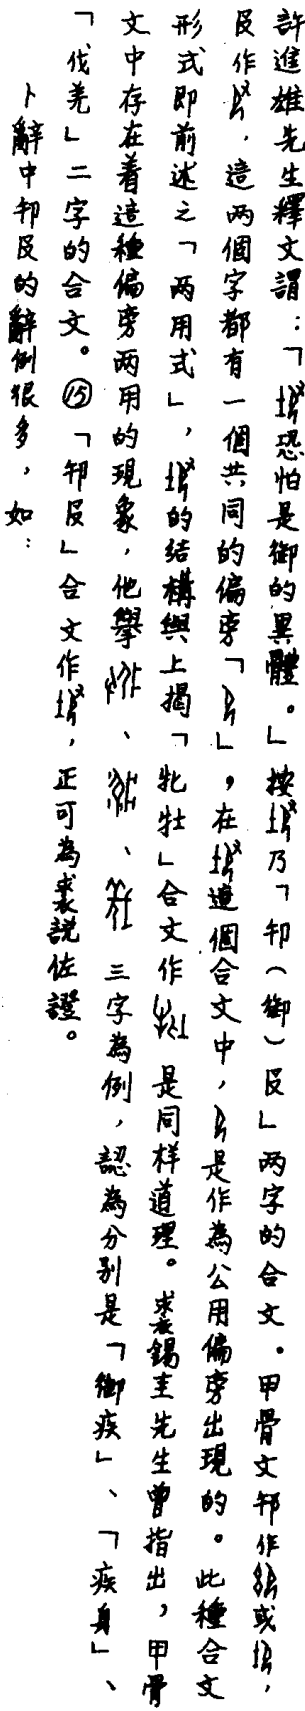 許進雄先生釋文謂：「恐怕是御的異體。」按乃「卸（御）𠬝」两字的合文。甲骨文卸作或，
𠬝作，這两個字都有一個共同的偏旁「」，在這個合文中，是作為公用偏旁出現的。此種合文
形式即前述之「两用式」，的結構與上揭「牝牡」合文作是同样道理。裘錫圭先生曾指出，甲骨
文中存在着這種偏旁两用的現象，他舉、、三字為例，認為分別是「御疾」、「疾身」、
「伐羌」二字的合文。⑮「卸𠬝」合文作，正可為裘説佐證。
卜辭中卸𠬝的辭例很多，如：